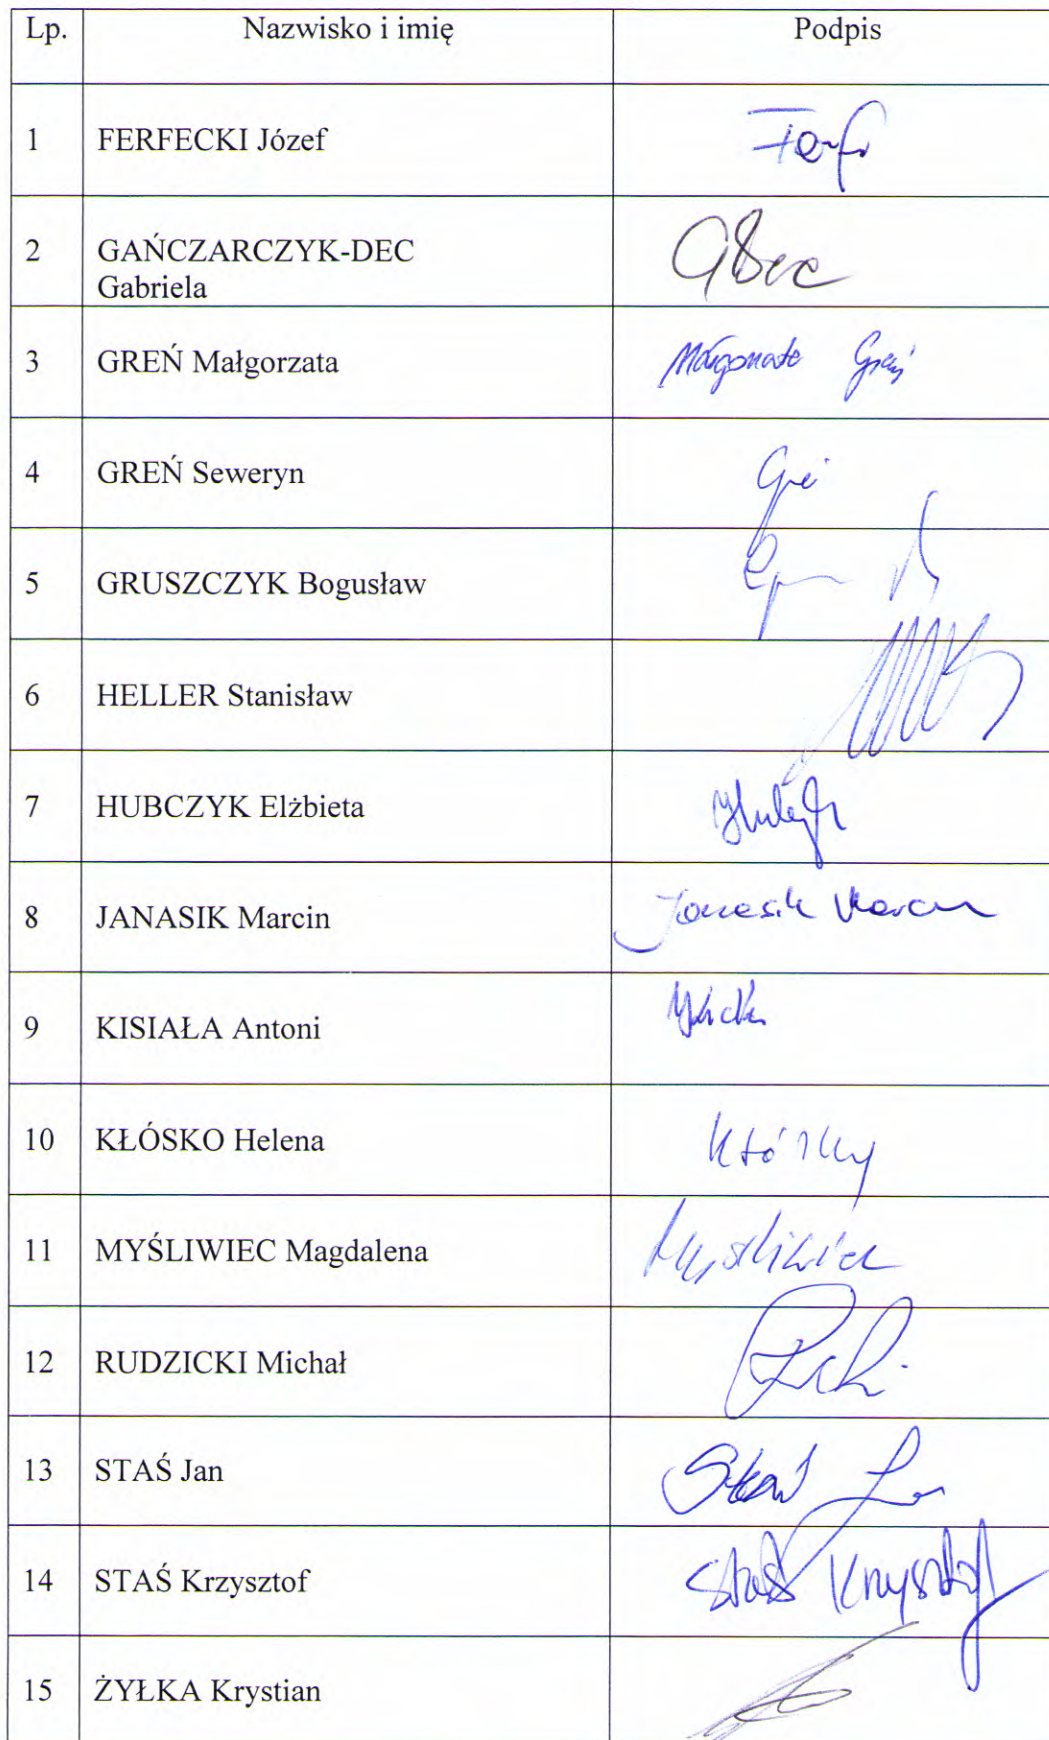 Lp. Nazwisko i imię Podpis
1 FERFECKI Józef
2 GAŃCZARCZYK-DEC
Gabriela
3 GREŃ Małgorzata Małgorzata Greń
4 GREŃ Seweryn
5 GRUSZCZYK Bogusław
6 HELLER Stanisław
7 HUBCZYK Elżbieta
8 JANASIK Marcin Janasik Marcin
9 KISIAŁA Antoni
10 KŁÓSKO Helena
11 MYŚLIWIEC Magdalena Myśliwiec
12 RUDZICKI Michał
13 STAŚ Jan Staś Jan
14 STAŚ Krzysztof Staś Krzysztof
15 ŻYŁKA Krystian